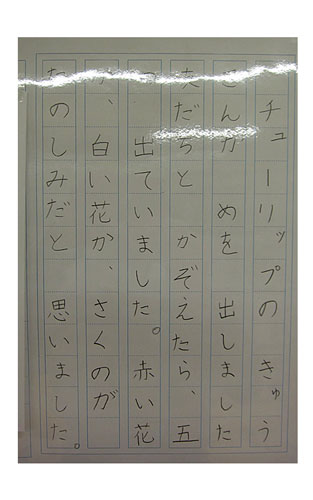 チューリップの きゅう
こんが めを 出しました
友だちと かぞえたら、五
つ 出ていました。赤い花
か、白い花か、さくのが
たのしみだと 思いました。